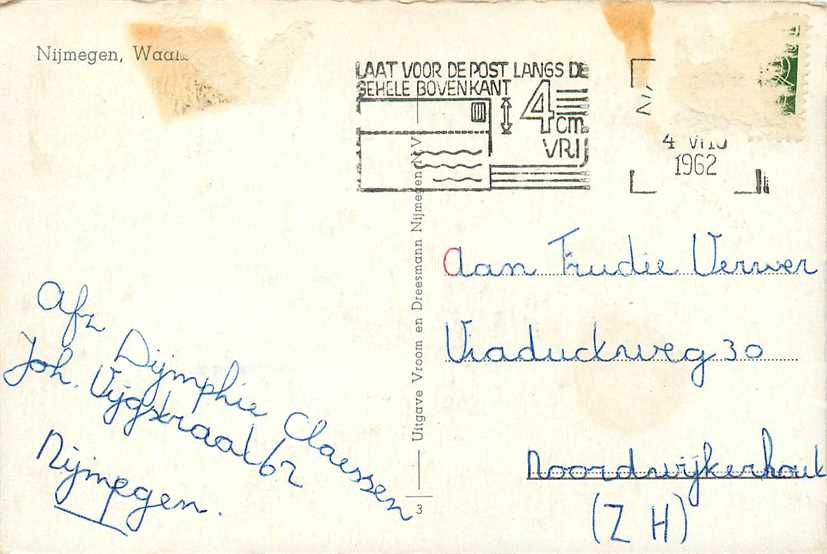 Nijmegen, Waal
LAAT VOOR DE POST LANGS DE
GEHELE BOVENKANT
4 cm.
VRIJ
1962
Uitgave Vroom en Dreesmann Nijmegen N.V.
3
Aan Trudie Verwer
Viaductweg 30
Noordwijkerhout
(Z H)
Afz Dijmphie Claessen
Joh. Vijgstraat 62
Nijmegen.